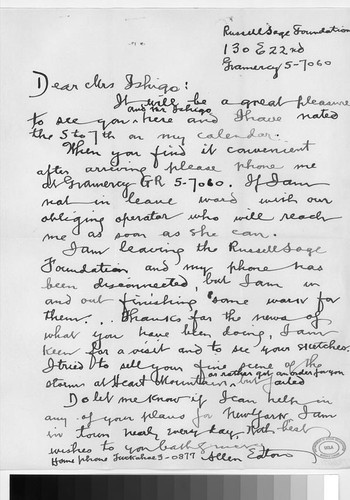 Russell Sage Foundation
130 E 22nd
Gramercy 5-7060
Dear Mrs Ishigo:
It will be a great pleasure
and Mr Ishigo
to see you here and I have noted
the 5 to 7th on my calendar.
When you find it convenient
after arriving please phone me
at Gramercy GR 5-7060. If I am
not in leave word with our
obliging operator who will reach
me as soon as she can.
I am leaving the Russell Sage
Foundation and my phone has
been disconnected, but I am in
and out finishing some work for
them... Thanks for the news of
what you have been doing, I am
keen for a visit and to see your sketches.
I tried to sell your fine scene of the
or rather get an order for you
storm at Heart Mountain, but failed
Do let me know if I can help in
any of your plans for New York, I am
in town nearly every day, With best
wishes to you both
Home phone Tuckahoe 3-0877 Allen Eaton
UCLA